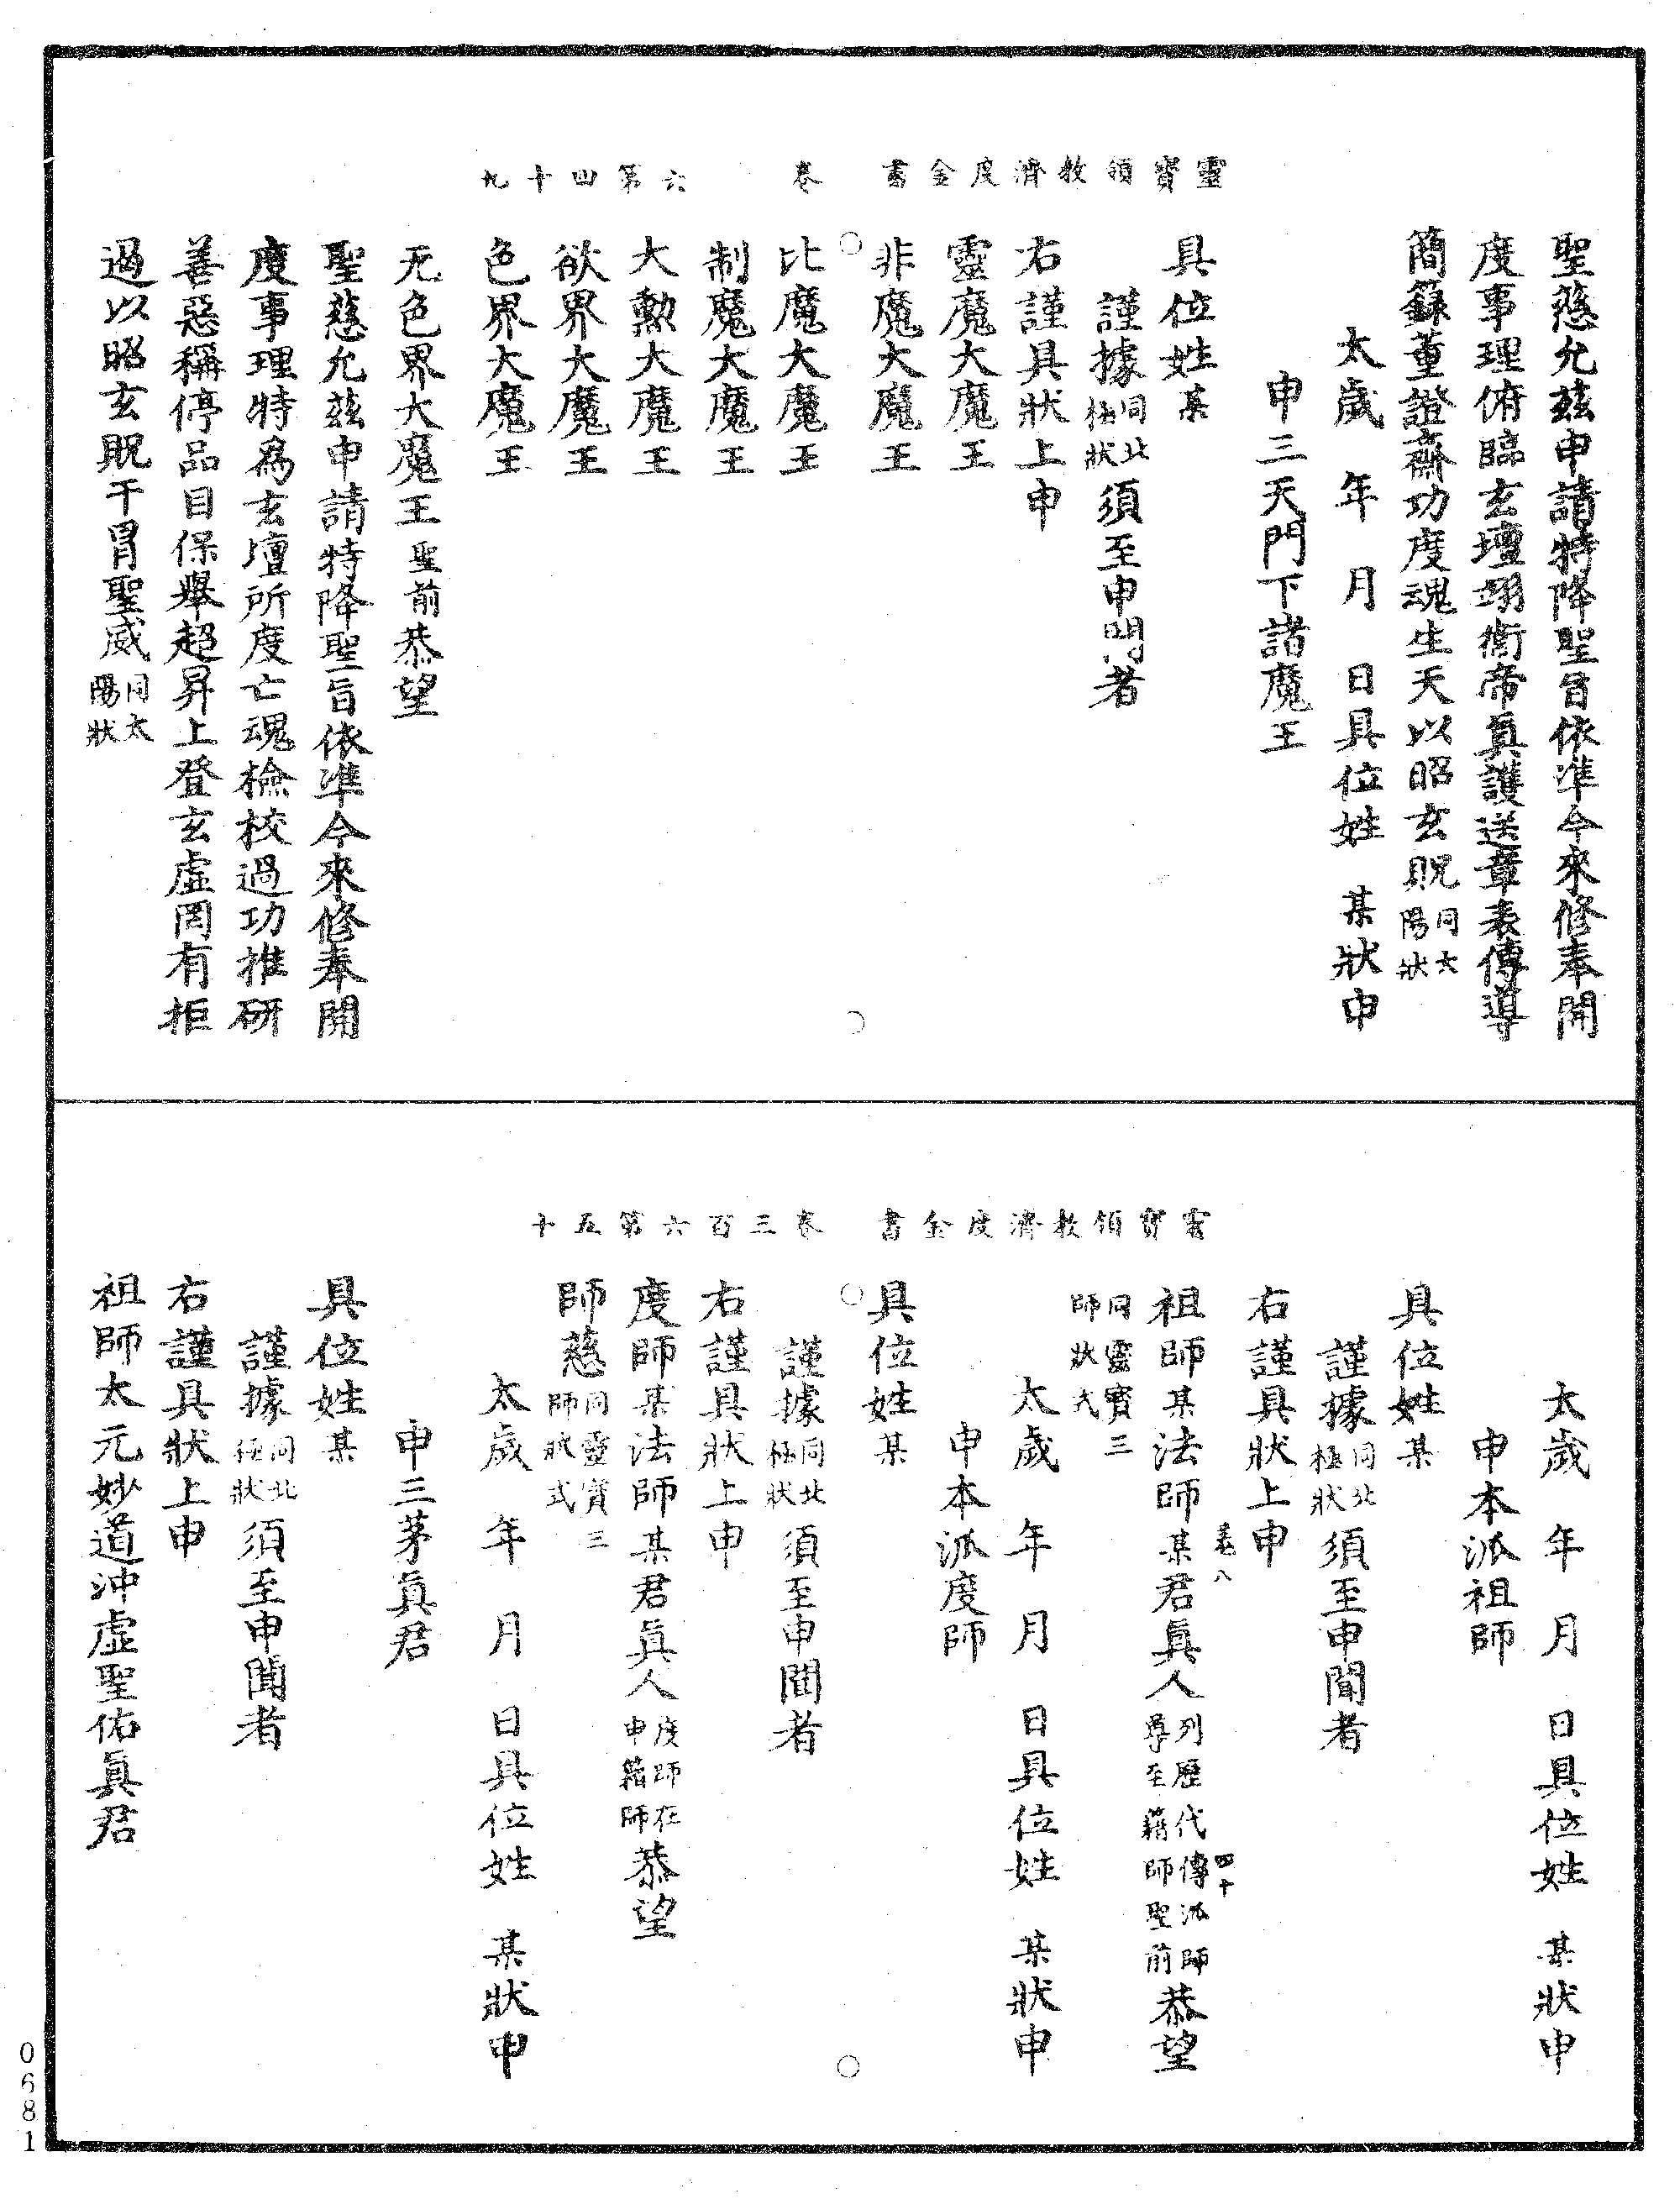 靈寶領教濟度金書　卷　六第四十九
聖慈允玆申請特降聖旨依準今來修奉開
度事理俯臨玄壇翊衛帝眞護送章表傳導
簡籙董證齋功度魂生天以昭玄貺同太陽狀
太歲　年　月　日具位姓　某狀申
申三天門下諸魔王
具位姓某
謹據同北極狀須至申聞者
右謹具狀上申
靈魔大魔王
非魔大魔王
比魔大魔王
制魔大魔王
大勳大魔王
欲界大魔王
色界大魔王
无色界大魔王聖前恭望
聖慈允玆申請特降聖旨依準今來修奉開
度事理特爲玄壇所度亡魂檢校過功推研
善惡稱停品目保舉超昇上登玄虛罔有拒
遏以昭玄貺干冐聖威同太陽狀
靈寶領教濟度金書　卷三百六第五十
太歲　年　月　日具位姓　某狀申
申本派祖師
具位姓某
謹據同北極狀須至申聞者
右謹具狀上申
祖師某法師某君眞人列歷代傳派師尊至籍師聖前恭望
同靈寶三師狀式
太歲　年　月　日具位姓　某狀申
申本派度師
具位姓某
謹據同北極狀須至申聞者
右謹具狀上申
度師某法師某君眞人度師在申籍師恭望
師慈同靈寶三師狀式
太歲　年　月　日具位姓　某狀申
申三茅眞君
具位姓某
謹據同北極狀須至申聞者
右謹具狀上申
祖師太元妙道沖虛聖佑眞君
0681